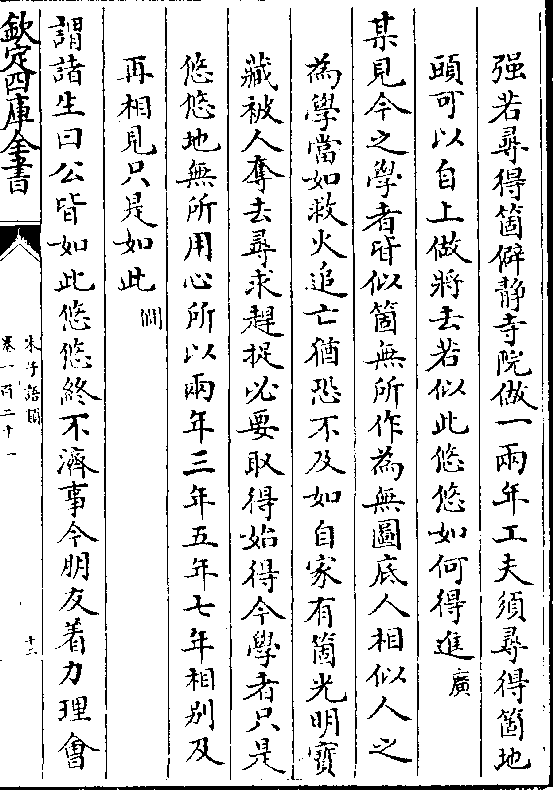 强若尋得箇僻静寺院做一兩年工夫須尋得箇地
頭可以自上做將去若似此悠悠如何得進廣
某見今之學者皆似箇無所作為無圖底人相似人之
為學當如救火追亡猶恐不及如自家有箇光明寳
藏被人奪去尋求趕捉必要取得始得今學者只是
悠悠地無所用心所以兩年三年五年七年相别及
再相見只是如此 僴
謂諸生曰公皆如此悠悠終不濟事今朋友着力理會
欽定四庫全書
朱子語類
卷一百二十一
十三